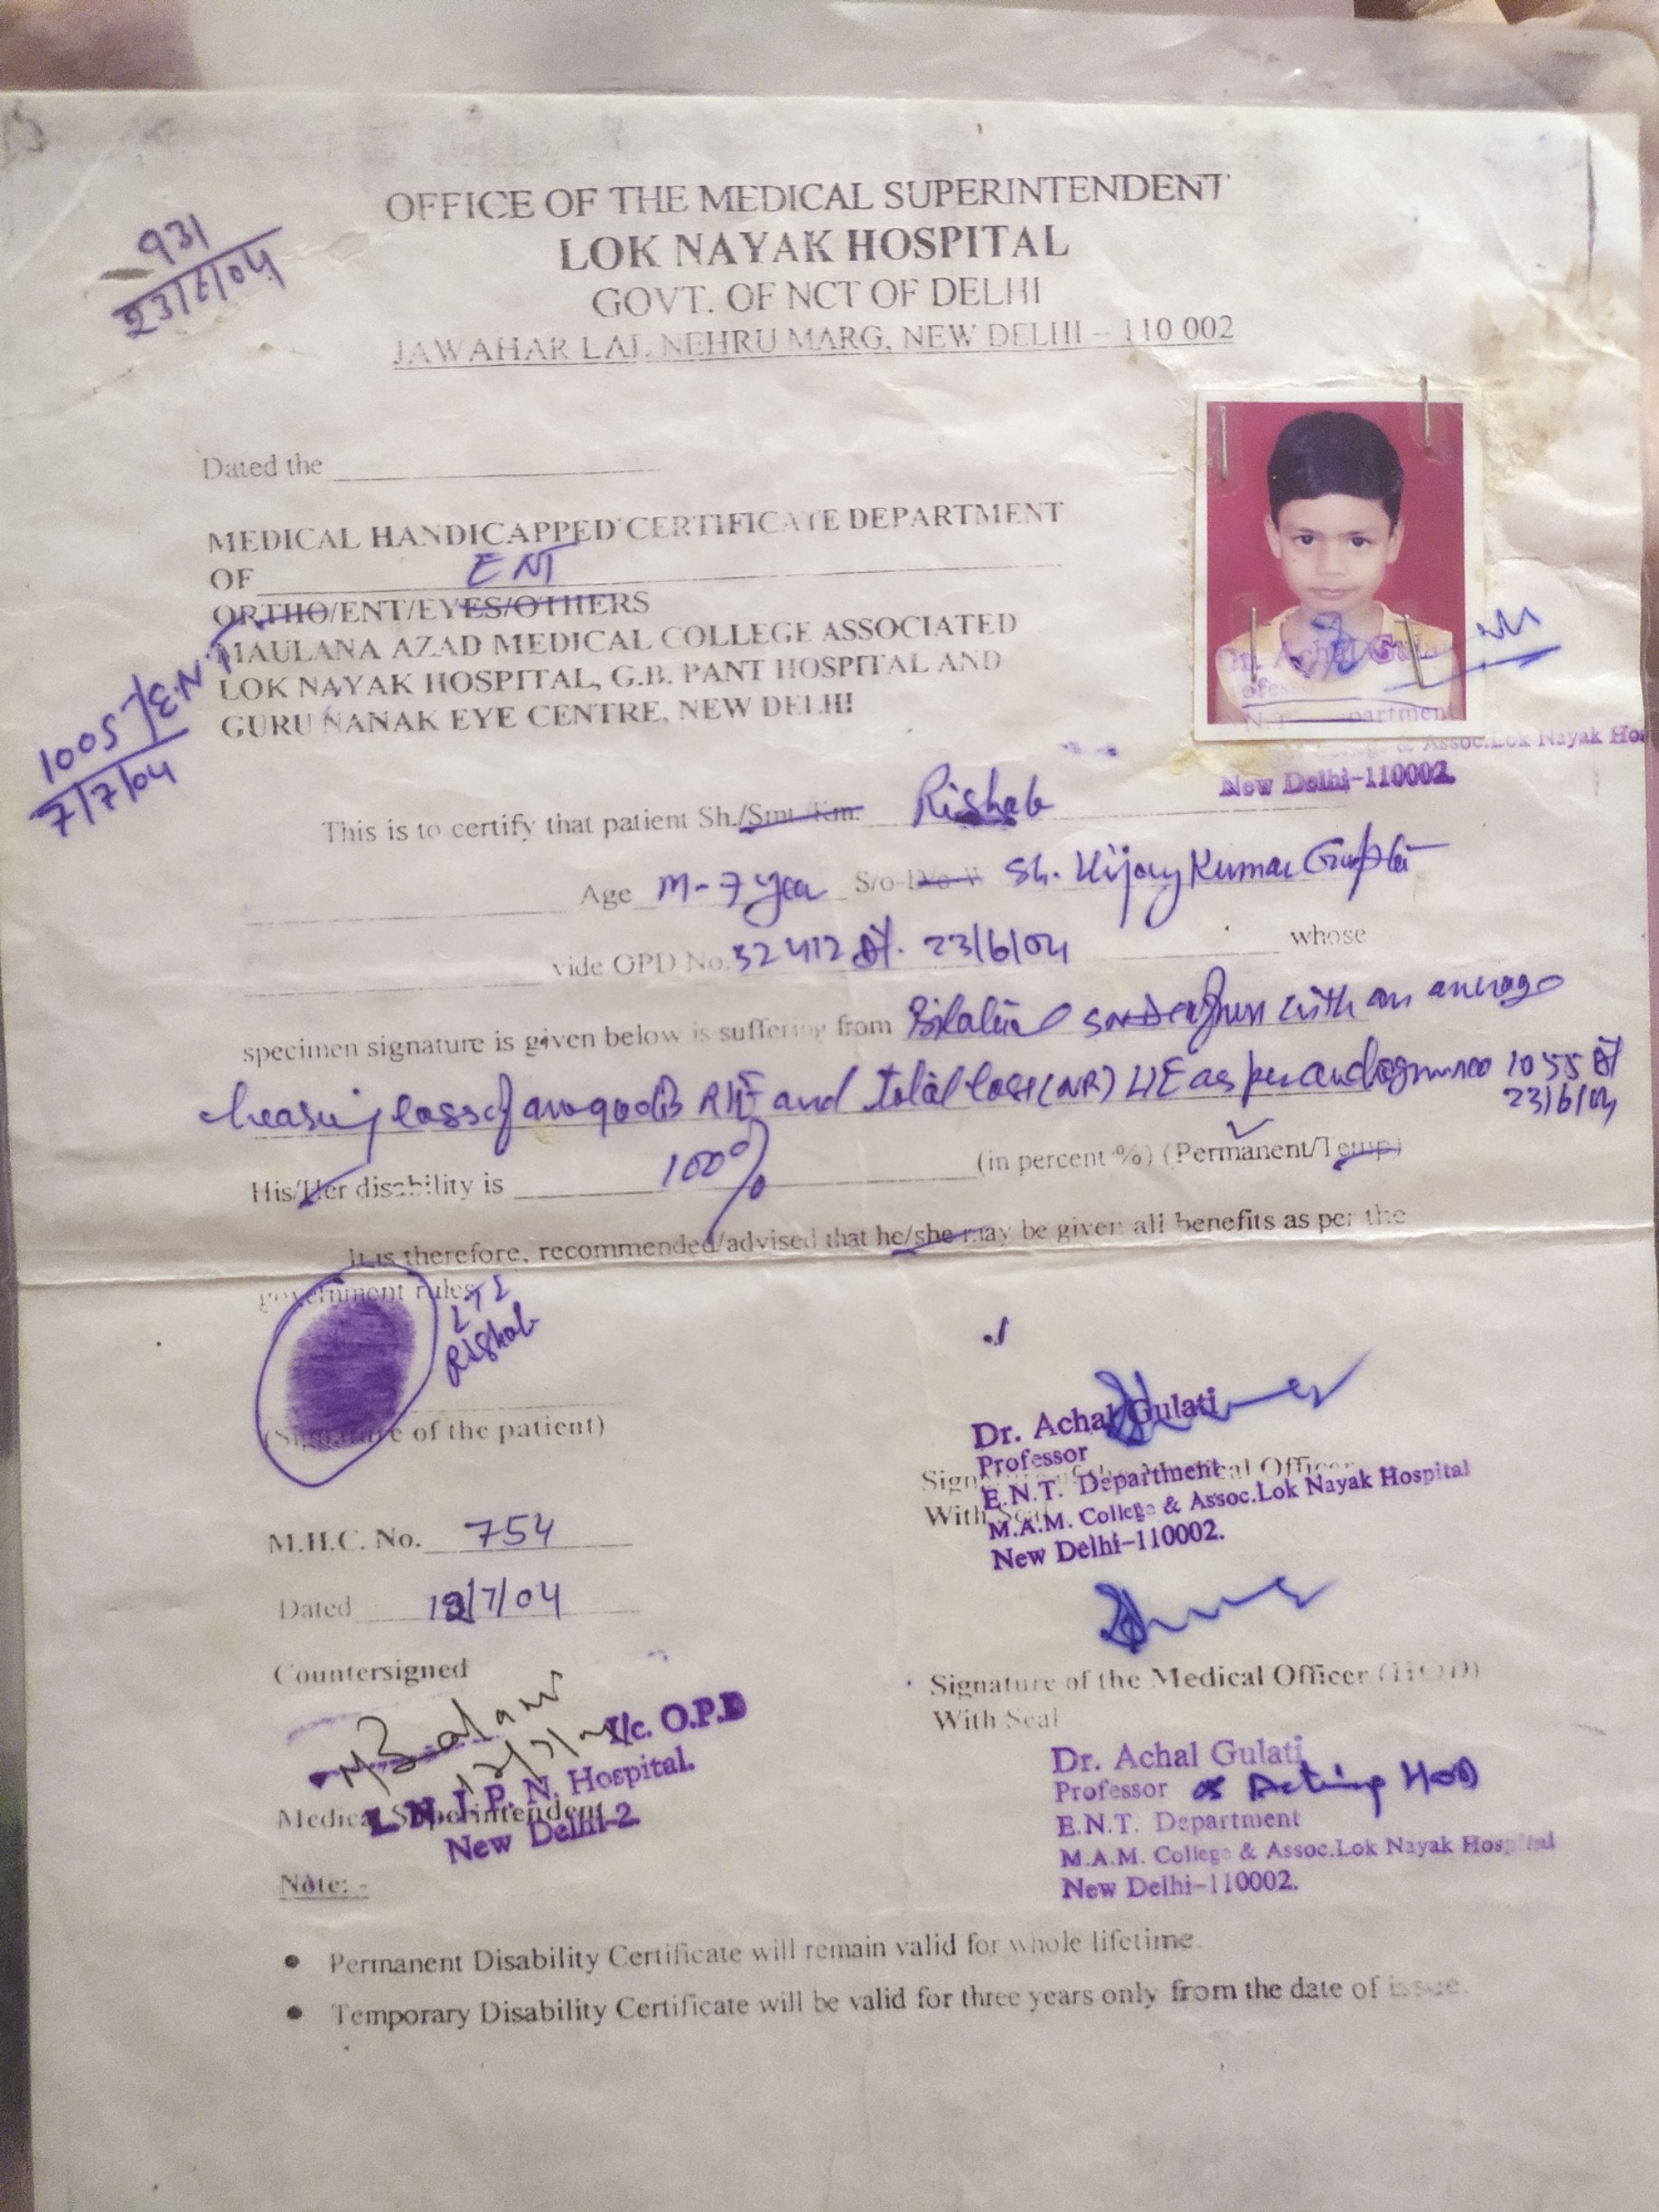 931
23/6/04
OFFICE OF THE MEDICAL SUPERINTENDENT
LOK NAYAK HOSPITAL
GOVT. OF NCT OF DELHI
JAWAHAR LAL NEHRU MARG, NEW DELHI – 110 002
Dated the
MEDICAL HANDICAPPED CERTIFICATE DEPARTMENT
OF ENT
ORTHO/ENT/EYES/OTHERS
MAULANA AZAD MEDICAL COLLEGE ASSOCIATED
LOK NAYAK HOSPITAL, G.B. PANT HOSPITAL AND
GURU NANAK EYE CENTRE, NEW DELHI
1005/E.N.T
7/7/04
Assoc.Lok Nayak Hos
New Delhi-110002.
This is to certify that patient Sh./Smt/Km. Rishab
Age M-7 year S/o Sh. Vijay Kumar Gupta
vide OPD No. 32412 dt. 23/6/04 whose
specimen signature is given below is suffering from with an average
hearing loss of RE and total loss (NR) LE as per 1055 dt
23/6/04
His/Her disability is 100% (in percent %) (Permanent/Temp)
It is therefore, recommended/advised that he/she may be given all benefits as per the
government rules
LTI
Rishab
(Signature of the patient)
Dr. Achal Gulati
Professor
E.N.T. Department
M.A.M. College & Assoc.Lok Nayak Hospital
New Delhi-110002.
Signature of the Medical Officer
With Seal
M.H.C. No. 754
Dated 12/7/04
Countersigned
I/c. O.P.D
L. N. J. P. N. Hospital.
New Delhi-2.
Medical Superintendent
Signature of the Medical Officer (HOD)
With Seal
Dr. Achal Gulati
Professor & Acting HOD
E.N.T. Department
M.A.M. College & Assoc.Lok Nayak Hospital
New Delhi-110002.
Note: -
• Permanent Disability Certificate will remain valid for whole lifetime.
• Temporary Disability Certificate will be valid for three years only from the date of issue.